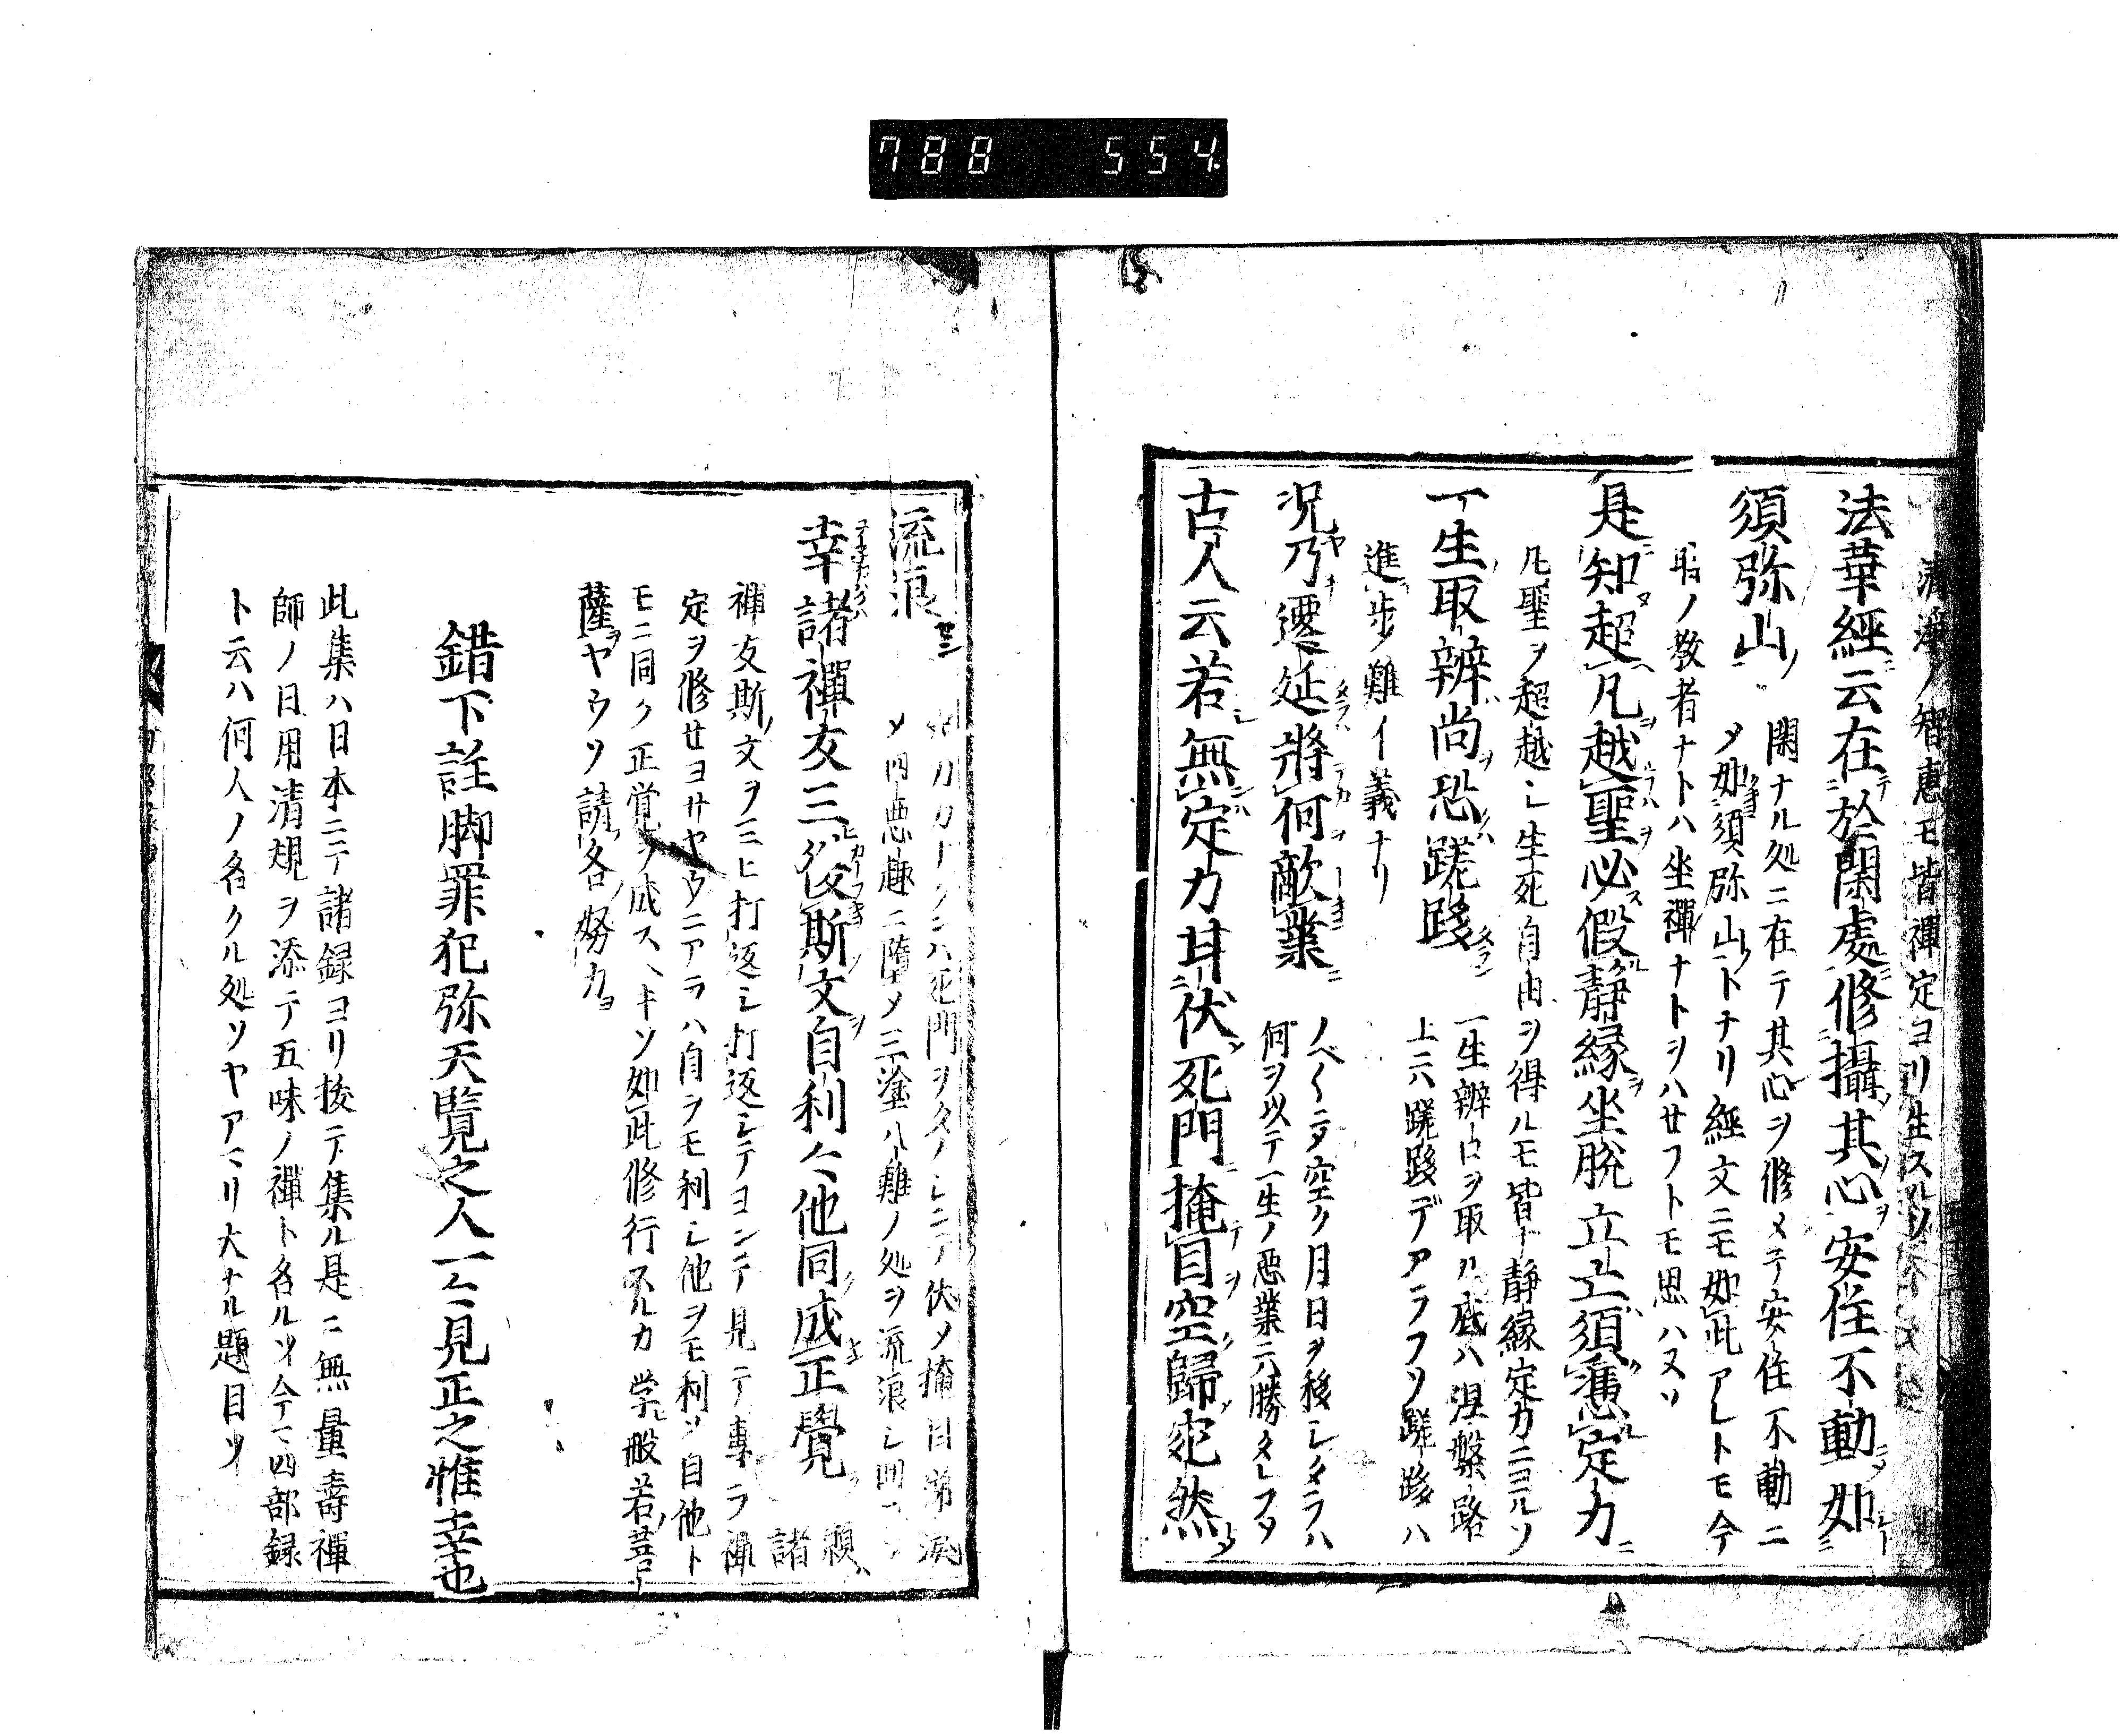 788 554
清淨ノ智恵モ皆禪定ヨリ生スルソ
法華經云在於閑處修攝其心安住不動如
須弥山 閑ナル処ニ在テ其心ヲ修メテ安住不動ニ
メ如須弥山トナリ經文ニモ如此アレトモ今
時ノ敎者ナトハ坐禪ナトヲハサフトモ思ハヌソ
是知超凡越聖必假靜縁坐脱立亡須憑定力
凡聖ヲ超越シ生死自由ヲ得ルモ皆ト靜縁定力ニヨルソ
一生取辨尚恐蹉跎 一生辨ロヲ取ル底ハ涅槃路
上ニハ蹉跎デアラフソ蹉跎ハ
進歩ノ難イ義ナリ
況乃遷延將何敵業 ノベ〱ニタ空ク月日ヲ移シタラハ
何ヲ以テ一生ノ悪業ニハ勝タレフソ
古人云若無定力甘伏死門掩目空歸宛然
流浪 死門ヲ伏メ掩目
メ四悪趣ニ墮メ三塗八難ノ処ヲ流浪シ
幸諸禪友三復斯文自利〻他同成正覺 諸
禪友斯文ヲ三ヒ打返シ打返シテヨンテ見テ專ラ禪
定ヲ修せヨサヤウニアラハ自ラモ利シ他ヲモ利ソ自他ト
モニ同ク正覚ヲ成スヘキソ如此修行スルカ学般若菩
薩ヤウソ請各努力
錯下註脚罪犯弥天覧之人一〻見正之惟幸也
此集ハ日本ニテ諸録ヨリ拔テ集ル是ニ無量壽禪
師ノ日用清規ヲ添テ五味ノ禪ト名ルソ今マ四部録
ト云ハ何人ノ名クル処ソヤアマリ大ナル題目ソ